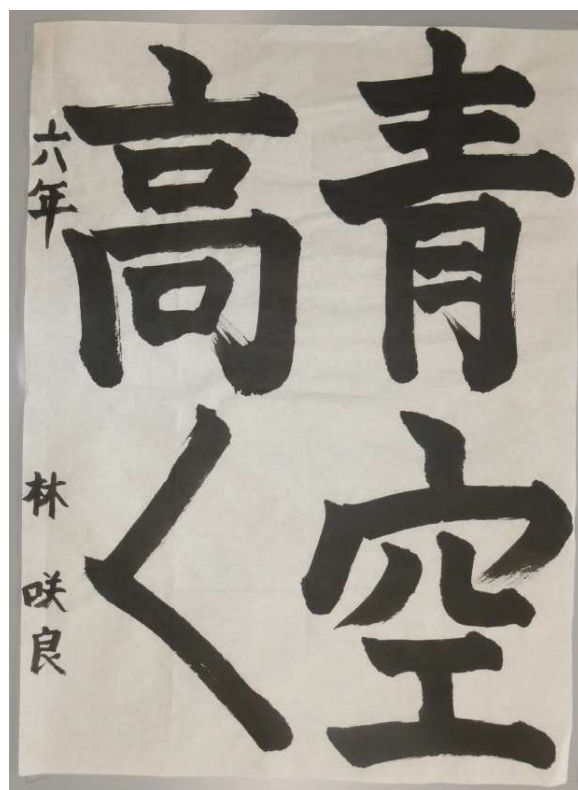 青空
高く
六年 林 咲良